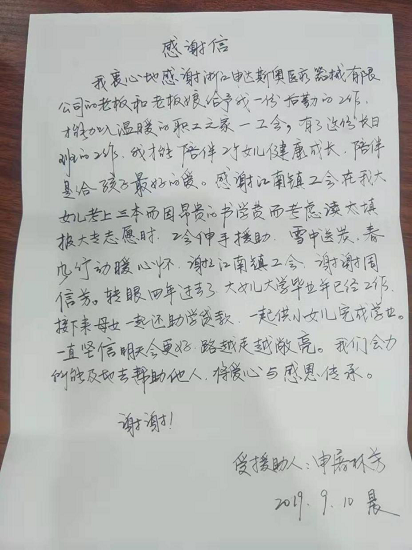 感谢信
我衷心地感谢浙江申达斯奥医疗器械有限
公司的老板和老板娘给予我一份后勤的工作,
才能加入温暖的职工之家一工会,有了这份长日
班的工作,我才能陪伴2个女儿健康成长,陪伴
是给孩子最好的爱。感谢江南镇工会在我大
女儿考上三本而因昂贵的书学费而考虑读大填
报大专志愿时,工会伸手援助,雪中送炭,春
步行动暖心怀,谢江南镇工会,谢谢周
信芳。转眼四年过去了大女儿大学毕业并已经工作,
接下来母女一起还助学贷款,一起供小女儿完成学业。
一直坚信明天会更好 路越走越敞亮。我们会力
所能及地去帮助他人,将爱心与感恩传承。
谢谢!
受援助人:申屠林芳
2019.9.10